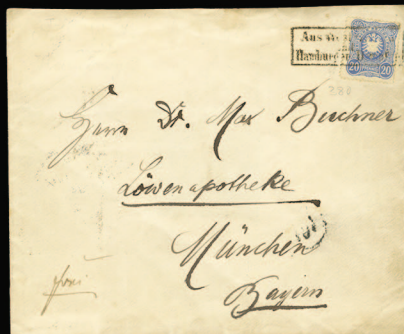 Aus
Hamburg
20 20
Herrn Dr. Max Buchner
Löwenapotheke
München
Bayern